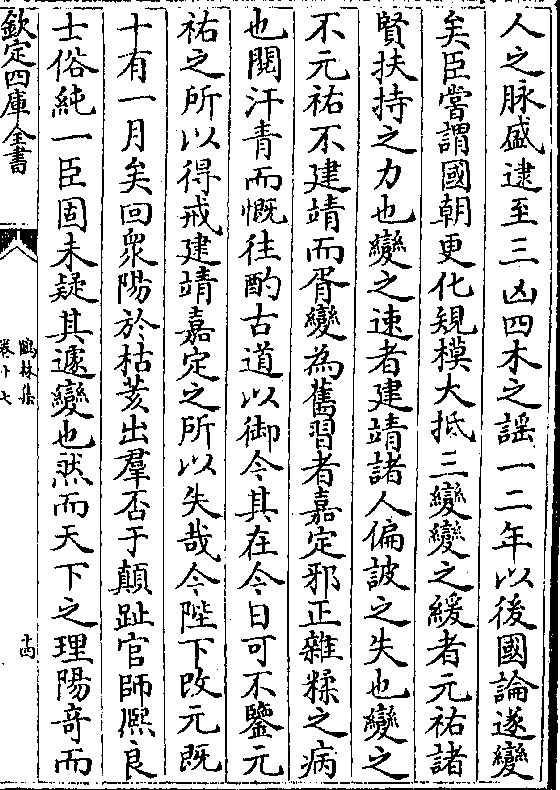 人之脉盛逮至三凶四木之謡一二年以後國論遂變
矣臣嘗謂國朝更化䂓模大抵三變變之緩者元祐諸
賢扶持之力也變之速者建靖諸人偏詖之失也變之
不元祐不建靖而胥變為舊習者嘉定邪正雜糅之病
也閱汗青而慨往酌古道以御今其在今日可不鑒元
祐之所以得戒建靖嘉定之所以失哉今陛下改元既
十有一月矣回衆陽於枯荄出羣否于顛趾官師熈良
士俗純一臣固未疑其遽變也然而天下之理陽竒而
欽定四庫全書
鶴林集
卷十七
十四